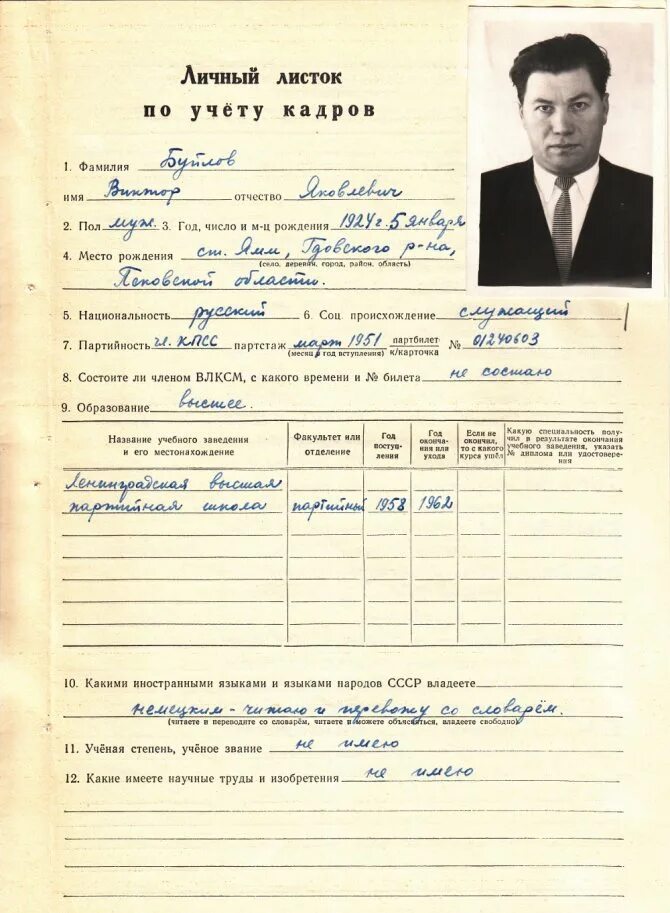 Личный листок
по учёту кадров
1. Фамилия Буйлов
имя Виктор отчество Яковлевич
2. Пол муж. 3. Год, число и м-ц рождения 1924 г. 5 января
4. Место рождения ст. Ямм, Гдовского р-на,
(село, деревня, город, район, область)
Псковской области.
5. Национальность русский 6. Соц. происхождение служащий
7. Партийность чл. КПСС партстаж март 1951 партбилет к/карточка № 01240603
(месяц и год вступления)
8. Состоите ли членом ВЛКСМ, с какого времени и № билета не состою
9. Образование высшее.
Название учебного заведения и его местонахождение
Факультет или отделение
Год поступления
Год окончания или ухода
Если не окончил, то с какого курса ушёл
Какую специальность получил в результате окончания учебного заведения, указать № диплома или удостоверения
Ленинградская высшая
партийная школа партийный 1958 1962
10. Какими иностранными языками и языками народов СССР владеете
немецким - читаю и перевожу со словарём.
(читаете и переводите со словарём, читаете и можете объясняться, владеете свободно)
11. Учёная степень, учёное звание не имею
12. Какие имеете научные труды и изобретения не имею